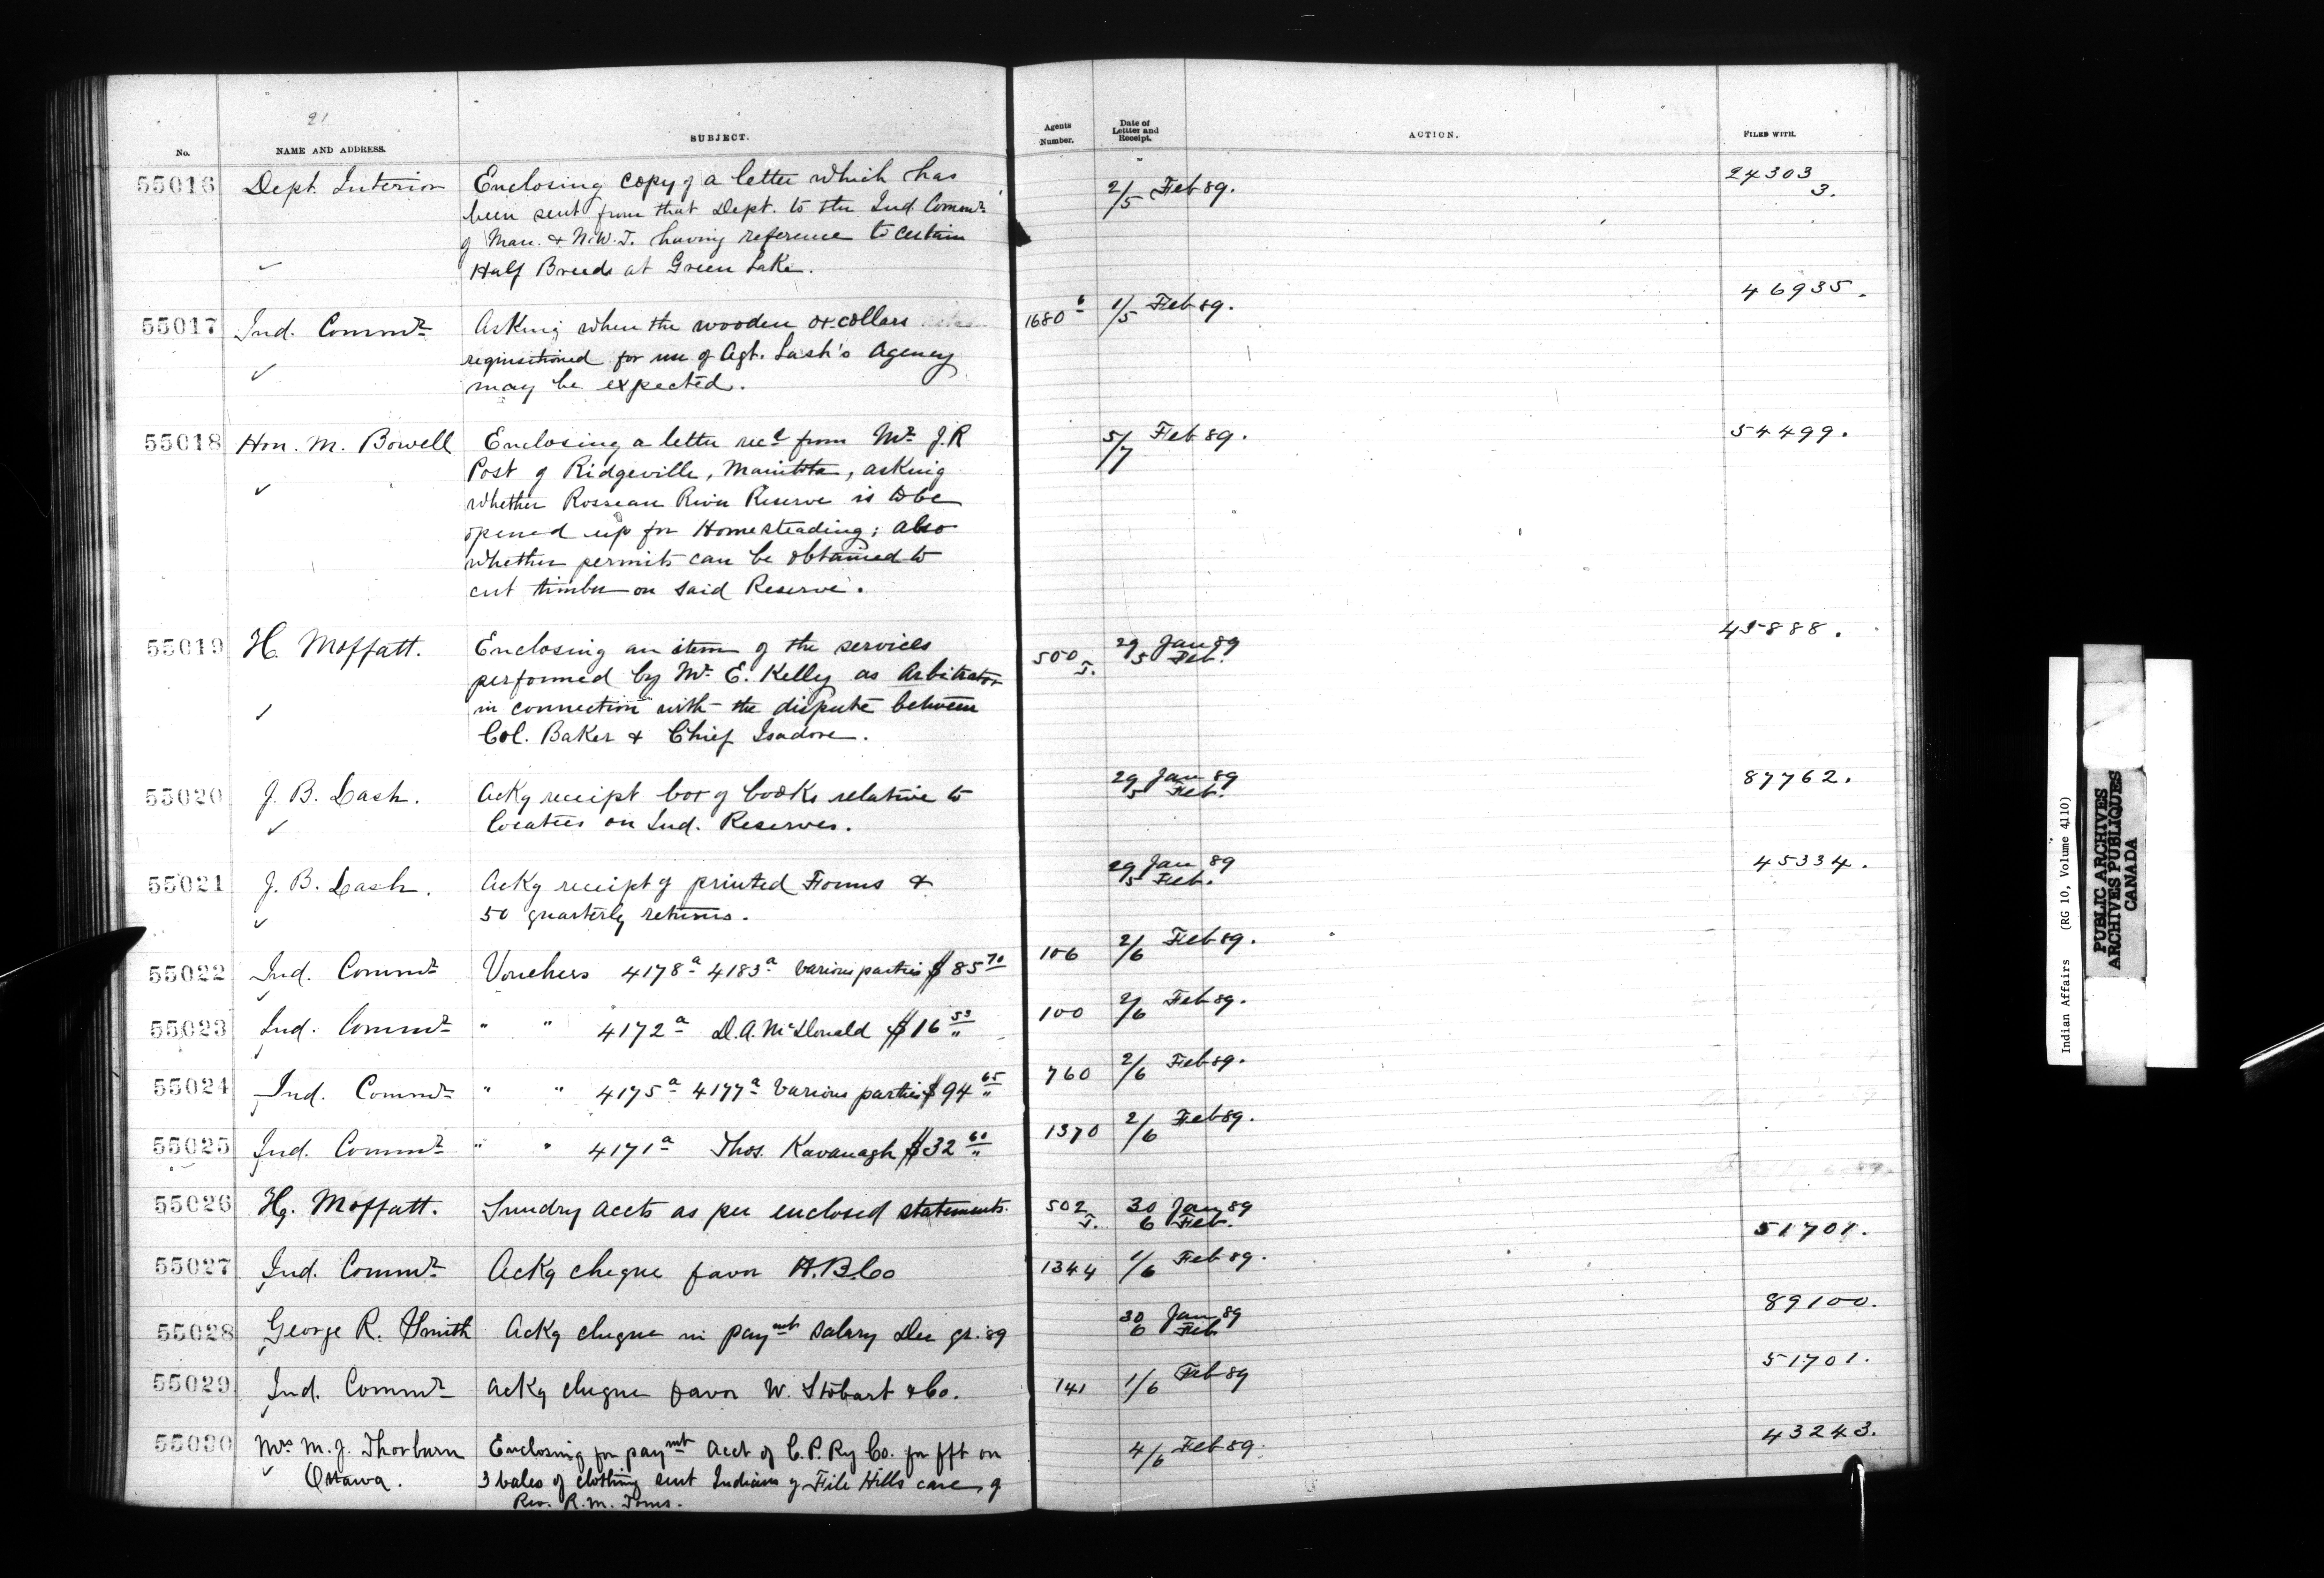 21
No.
NAME AND ADDRESS.
SUBJECT.
Agents Number.
Date of Letter and Receipt.
ACTION.
FILED WITH.
55016 Dept. Interior Enclosing copy of a letter which has 2/5 Feb 89. 24303
been sent from that Dept. to the Ind. Commr. 3.
of Man. & N.W.T. having reference to certain
Half Breeds at Green Lake.
55017 Ind. Commr. Asking when the wooden ox-collars 1680 6 1/5 Feb 89. 46935.
requisitioned for use of Agt. Lash's Agency
may be expected.
55018 Hon. M. Bowell Enclosing a letter recd from Mr. J. R 5/7 Feb 89. 54499.
Post of Ridgeville, Manitoba, asking
whether Rosseau River Reserve is to be
opened up for Homesteading; also
whether permits can be obtained to
cut timber on said Reserve.
55019 H. Moffatt. Enclosing an item of the services 500 29 Jan 89 45888.
performed by Mr. E. Kelly as Arbitrator J. 5 Feb.
in connection with the dispute between
Col. Baker & Chief Isadore.
55020 J. B. Lash. Ackg receipt box of books relative to 29 Jan 89 87762.
locatees on Ind. Reserves. 5 Feb.
55021 J. B. Lash. Ackg receipt of printed Forms & 29 Jan 89 45334.
50 quarterly returns. 5 Feb.
55022 Ind. Commr. Vouchers 4178a 4183a various parties $85 70 106 2/6 Feb 89.
55023 Ind. Commr. " " 4172a D. A. McDonald $16 53 100 2/6 Feb 89.
55024 Ind. Commr. " " 4175a 4177a Various parties $94 65 760 2/6 Feb 89.
55025 Ind. Commr. " " 4171a Thos. Kavanagh $32 60 1370 2/6 Feb 89.
55026 Hy. Moffatt. Sundry accts as per enclosed statements. 502 30 Jan 89
J. 6 Feb.
55027 Ind. Commr. Ackg cheque favor H.B.Co 1344 1/6 Feb 89. 51701.
55028 George R. Smith Ackg cheque in paymt salary Dec qr. 89 30 Jan 89 89100.
6 Feb
55029 Ind. Commr. Ackg cheque favor W. Stobart & Co. 141 1/6 Feb 89 51701.
55030 Mrs M. J. Thorburn Enclosing for paymt acct of C. P. Ry Co. for fft on 4/6 Feb 89. 43243.
Ottawa. 3 bales of clothing sent Indians of File Hills care of
Rev. R. M.
Indian Affairs (RG 10, Volume 4110)
PUBLIC ARCHIVES
ARCHIVES PUBLIQUES
CANADA